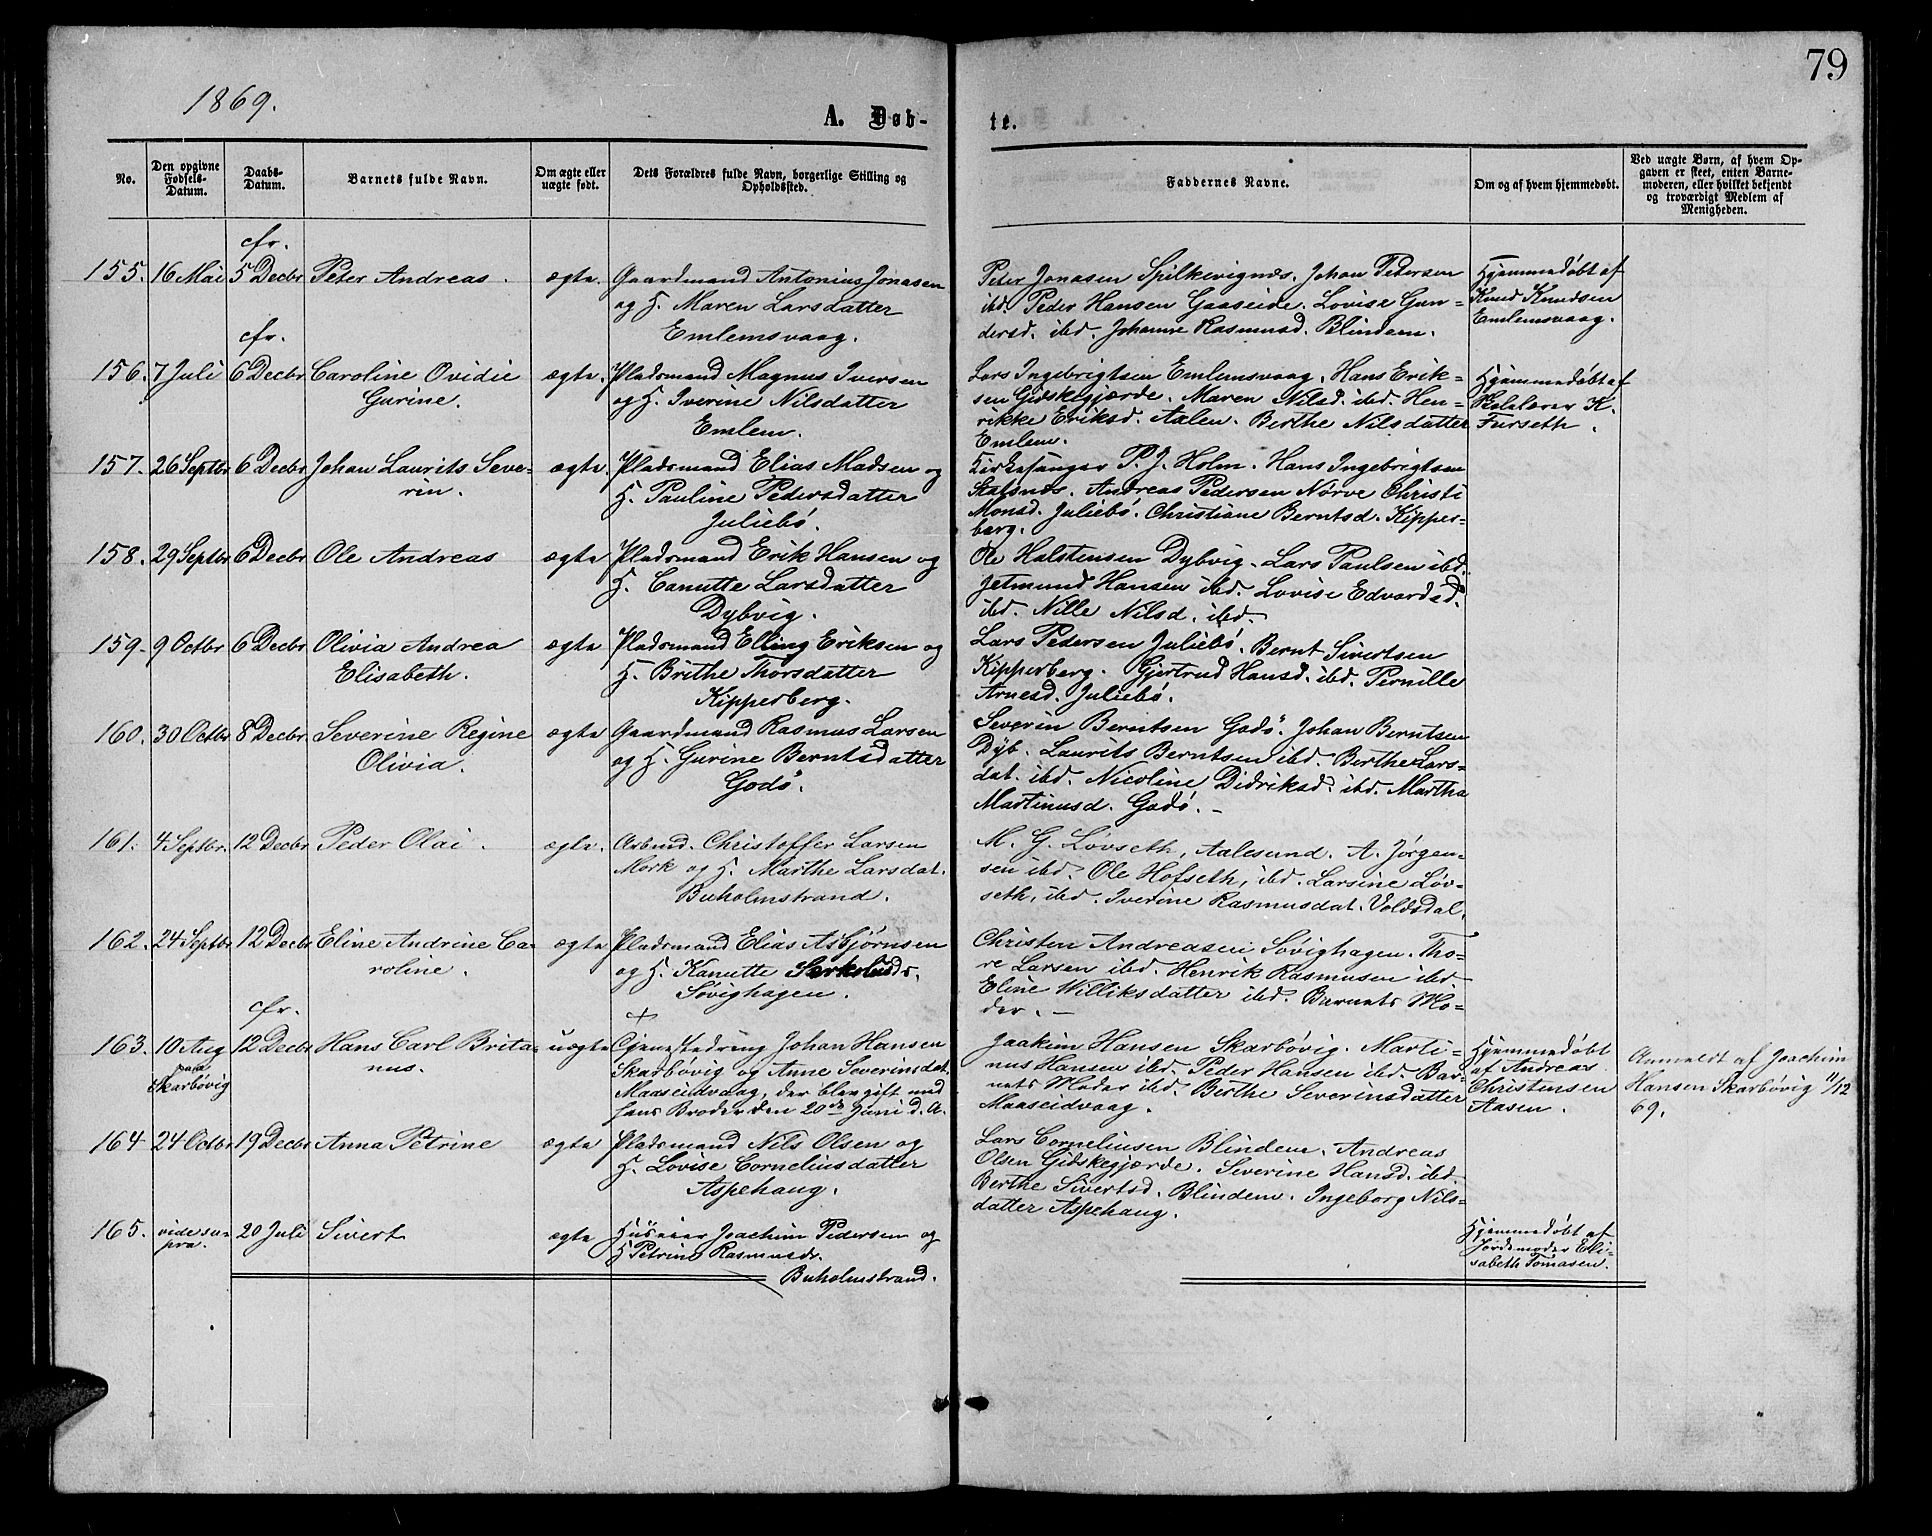 79
1869.
A. Døb-
te.
No.
Den opgivne Fødsels-Datum.
Daabs-Datum.
Barnets fulde Navn.
Om ægte eller uægte født.
Dets Forældres fulde Navn, borgerlige Stilling og Opholdssted.
Faddernes Navne.
Om og af hvem hjemmedøbt.
Ved uægte Børn, af hvem Opgaven er skeet, enten Barnemoderen, eller hvilket bekjendt og troværdigt Medlem af Menigheden.
cfr.
155. 16 Mai 5 Decbr Peter Andreas. ægte. Gaardmand Antonius Jonasen
og H. Maren Larsdatter
Emlemsvaag.
Peter Jonasen Spilkevignæs. Johan Pedersen
ibd. Peder Hansen Gaaseide. Lovise Gun-
dersd. ibd. Johanne Rasmusd. Blindem.
Hjemmedøbt af
Knud Knudsen
Emlemsvaag.
cfr.
156. 7 Juli 6 Decbr Caroline Ovidie
Gurine.
ægte. Pladsmand Magnus Iversen
og H. Iverine Nilsdatter
Emlem.
Lars Ingebrigtsen Emlemsvaag. Hans Erik-
sen Gidskegjærde. Maren Nilsd. ibd. Hen-
rikke Eriksd. Aalen. Berthe Nilsdatter
Emlem.
Hjemmedøbt af
Skolelærer K.
Furseth.
157. 26 Septbr 6 Decbr Johan Laurits Seve-
rin.
ægte. Pladsmand Elias Madsen og
H. Pauline Pedersdatter
Juliebø.
Kirkesanger P. J. Holm. Hans Ingebrigtsen
Slatsnæs. Andreas Pedersen Nørve Christi
Monsd. Juliebø. Christiane Berntsd. Kipper-
berg.
158. 29 Septbr 6 Decbr Ole Andreas ægte Pladsmand Erik Hansen og
H. Canutte Larsdatter
Dybvig.
Ole Halstensen Dybvig. Lars Paulsen ibd.
Jetmund Hansen ibd. Lovise Edvardsd.
ibd. Nille Nilsd. ibd.
159. 9 Octbr 6 Decbr Olivia Andrea
Elisabeth.
ægte Pladsmand Elling Eriksen og
H. Brithe Thorsdatter
Kipperberg.
Lars Pedersen Juliebø. Bernt Sivertsen
Kipperberg. Gjertrud Hansd. ibd. Pernille
Arnesd. Juliebø.
160. 30 Octbr 8 Decbr Severine Regine
Olivia.
ægte Gaardmand Rasmus Larsen
og H. Gurine Berntsdatter
Godø.
Severin Berntsen Godø. Johan Berntsen
Dyb. Laurits Berntsen ibd. Berthe Lars-
dat. ibd. Nicoline Didriksd. ibd. Martha
Martinusd. Godø. –
161. 4 Septbr. 12 Decbr Peder Olai. ægte. Arbmd. Christoffer Larsen
Mork og H. Marthe Larsdat.
Buholmstrand.
M. G. Løvseth, Aalesund. A. Jørgen-
sen ibd. Ole Hofseth, ibd. Larsine Løv-
seth, ibd. Iverine Rasmusdat. Voldsdal.
162. 24 Septbr 12 Decbr Eline Andrine Ca-
roline.
ægte Pladsmand Elias Asbjørnsen
og H. Kanutte
Søvighagen.
Christen Andreasen Søvighagen. Tho-
re Larsen ibd. Henrik Rasmusen ibd.
Eline Williksdatter ibd. Barnets Mo-
der. –
cfr.
163. 10 Aug
paa
Skarbøvig
12 Decbr Hans Carl Brita-
nus.
uægte Tjenestedreng Johan Hansen
Skarbøvig og Anne Severinsdat.
Maaseidvaag, der blev gift med
hans Broder den 20de Juni d. A.
Joakim Hansen Skarbøvig. Marti-
nus Hansen ibd. Peder Hansen ibd. Bar-
nets Moder ibd. Berthe Severinsdatter
Maaseidvaag.
Hjemmedøbt
af Andreas
Christensen
Aasen.
Anmeldt af Joachim
Hansen Skarbøvig 11/12
69.
164 24 Octbr 19 Decbr Anna Petrine ægte Pladsmand Nils Olsen og
H. Lovise Corneliusdatter
Aspehaug.
Lars Corneliusen Blindem. Andreas
Olsen Gidskegjærde. Severine Hansd. ibd.
Berthe Sivertsd. Blindem. Ingeborg Nils-
datter Aspehaug.
165. vide su-
pra.
20 Juli Sivert ægte Huseier Joachim Pedersen og
H Petrine Rasmusdr.
Buholmstrand.
Hjemmedøbt af
Jordemoder Eli-
sabeth Tomasen.